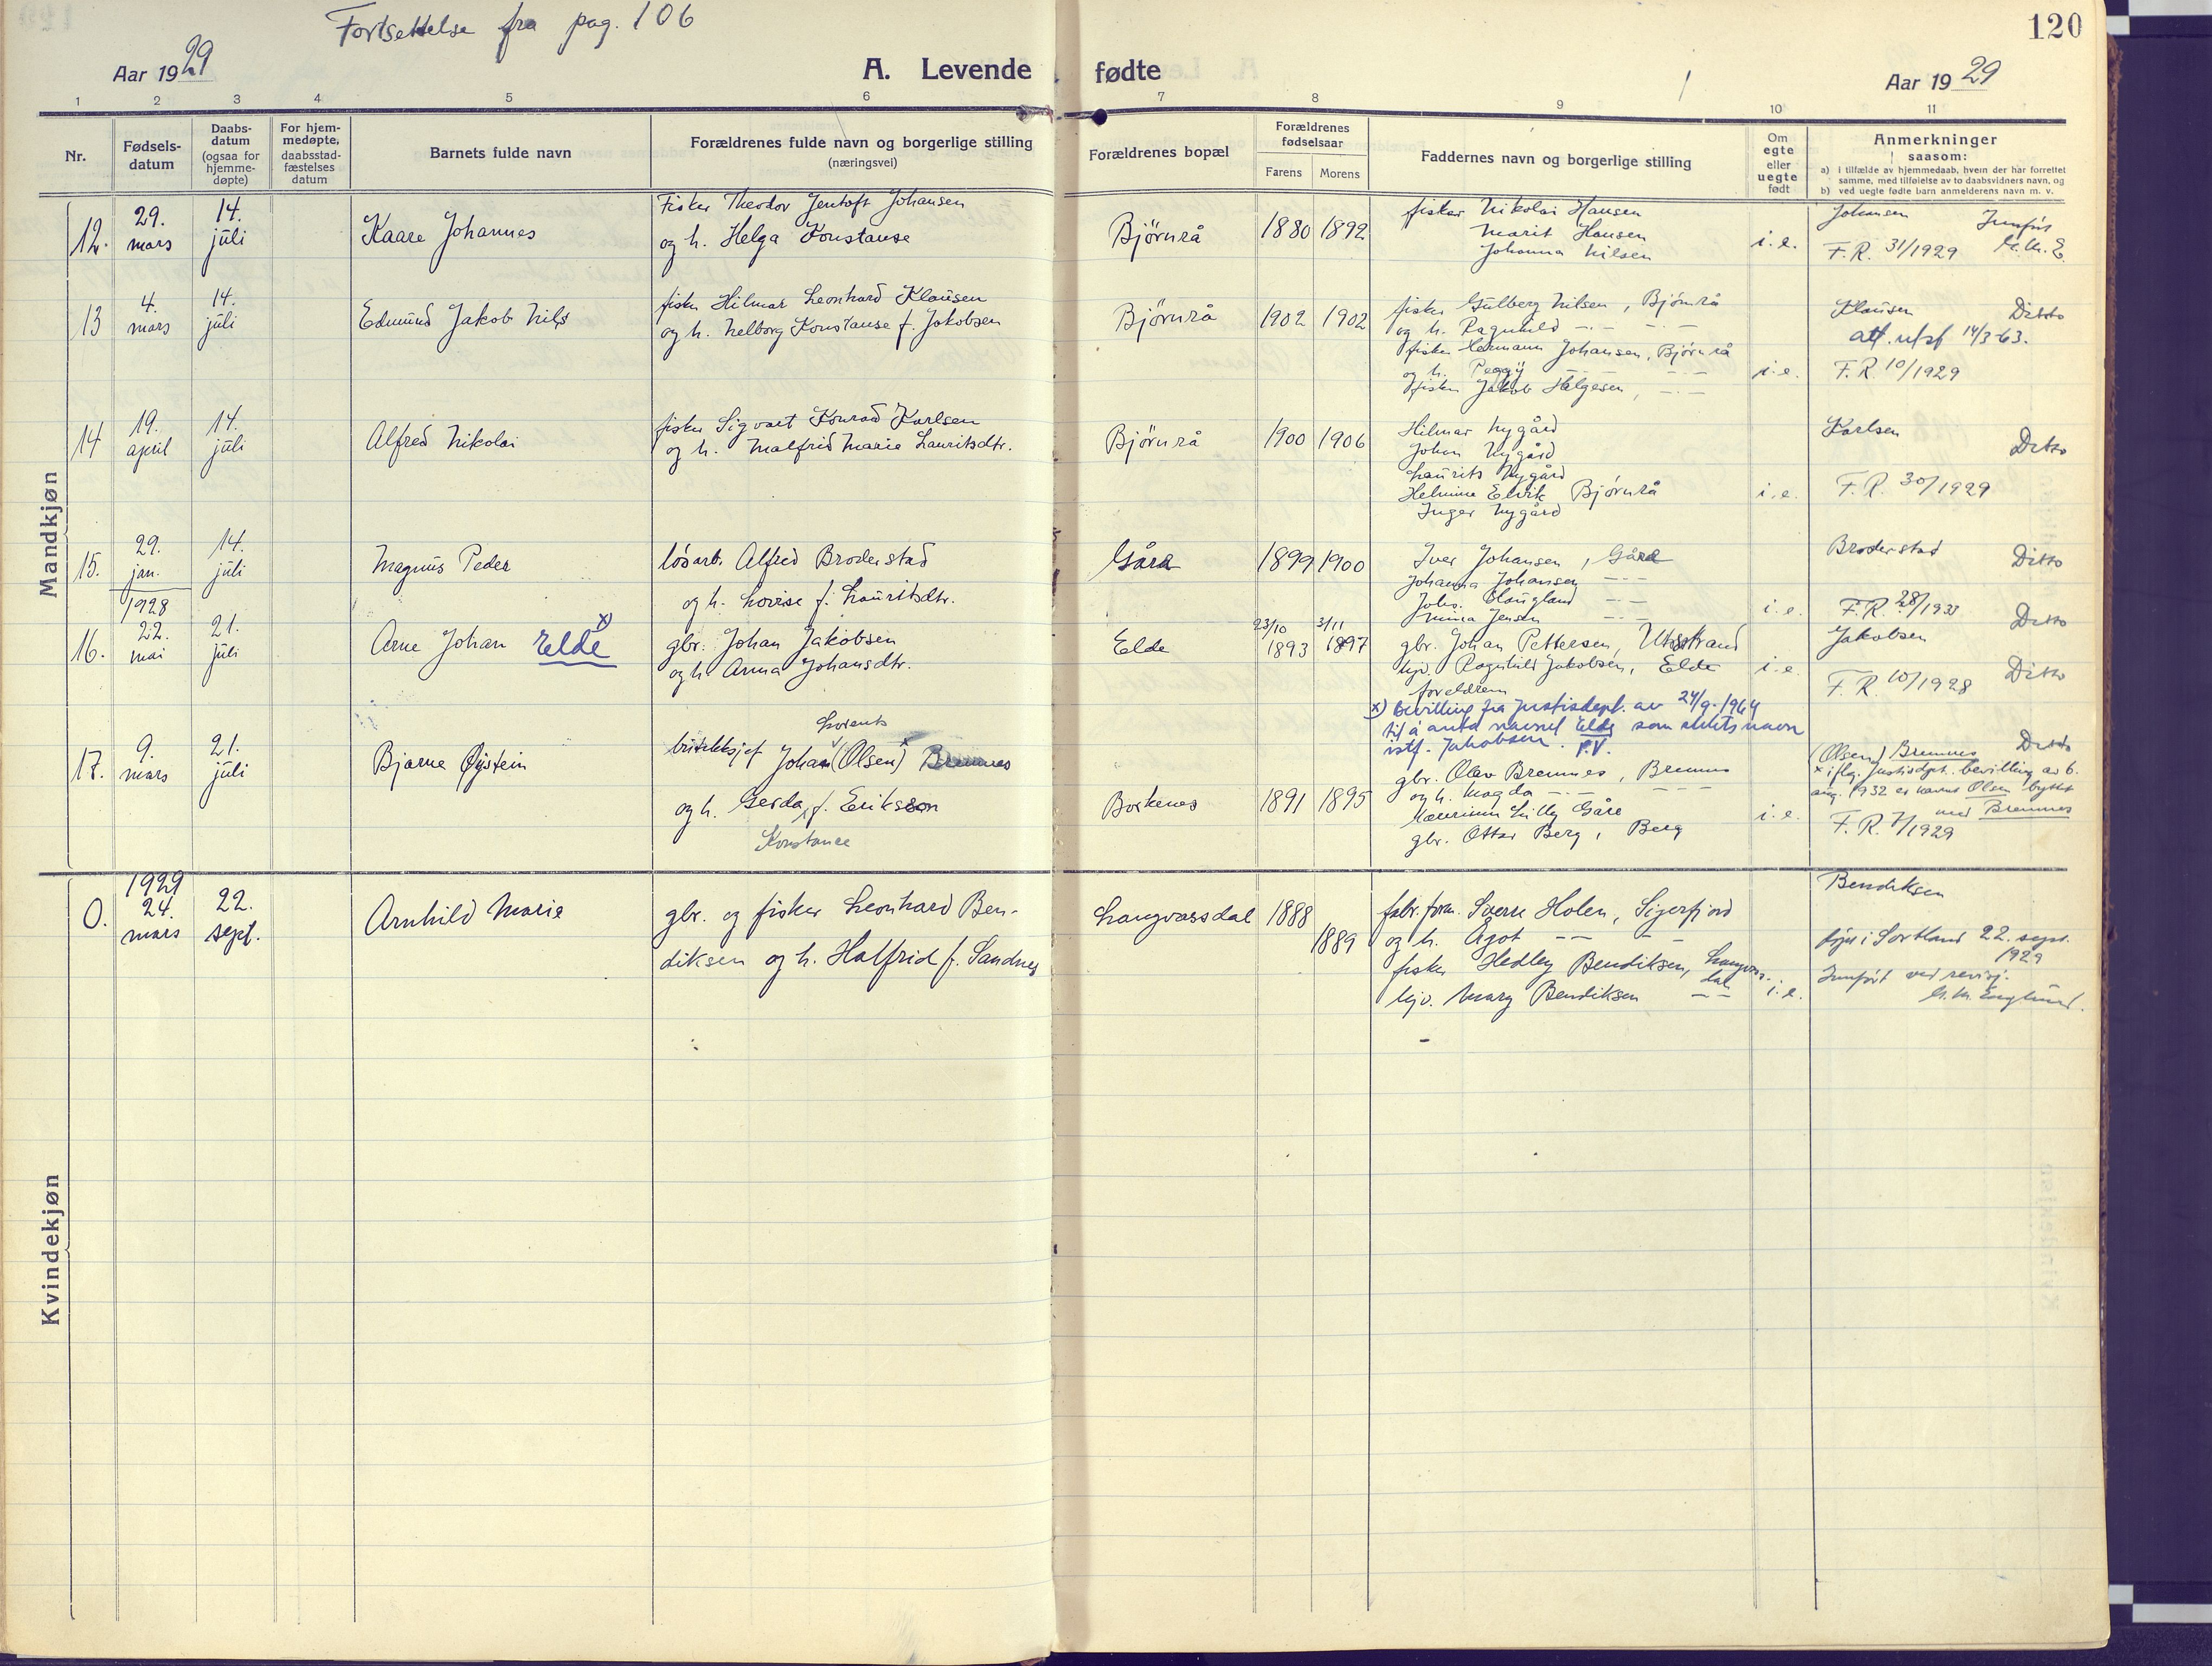 Fortsettelse fra pag. 106
120
Aar 1929
A. Levende fødte
Aar 1929
1 2 3 4 5 6 7 8 9 10 11
Nr.
Fødsels-
datum
Daabs-
datum
(ogsaa for
hjemme-
døpte)
For hjem-
medøpte,
daabsstad-
fæstelses
datum
Barnets fulde navn
Forældrenes fulde navn og borgerlige stilling
(næringsvei)
Forældrenes bopæl
Forældrenes
fødselsaar
Farens Morens
Faddernes navn og borgerlige stilling
Om
egte
eller
uegte
født
Anmerkninger
saasom:
a) i tilfælde av hjemmedaab, hvem der har forrettet
samme, med tilføielse av to daabsvidners navn, og
b) ved uegte fødte barn anmelderens navn m. v.
Mandkjøn
12.
29.
mars
14.
juli
Kaare Johannes
Fisker Theodor Jentoft Johansen
og h. Helga Konstanse
Bjørnrå
1880 1892
fisker Nikolai Hansen
Marit Hansen
Johanna Nilsen
i.e.
Johansen Innført
F.R. 31/1929 H.M.E.
13
4.
mars
14.
juli
Edmund Jakob Nils
fisker Hilmar Leonhard Klausen
og h. Nelborg Konstanse f. Jakobsen
Bjørnrå
1902 1902
fisker Gulberg Nilsen, Bjørnrå
og h. Ragnhild -.- -.-
fisker Hermann Johansen, Bjørnrå
og h. Peggy -.-
fisker Jakob Helgesen, -.-
i.e.
Klausen Ditto
att. utst 14/3-63.
F.R. 10/1929
14
19.
april
14.
juli
Alfred Nikolai
fisker Sigvart Konrad Karlsen
og h. Malfrid Marie Lauritsdtr.
Bjørnrå
1900 1906
Hilmar Nygård
Johan Nygård
Laurits Nygård
Helmine Elvik Bjørnrå
Inger Nygård
i.e.
Karlsen
Ditto
F.R. 30/1929
15.
29.
jan.
1928
14.
juli
Magnus Peder
løsarb. Alfred Broderstad
og h. Lovise f. Lauritsdtr.
Gåra
1899 1900
Iver Johansen, Gåra
Johanna Johansen -.-
Johs. Haugland -.-
Minna Jensen -.-
i.e.
Broderstad Ditto
F.R. 28/1931
16.
22.
mai
21.
juli
Arne Johan Elde x)
gbr. Johan Jakobsen
og h. Anna Johansdtr.
Elde
23/10 3/11
1893 1897
gbr. Johan Pettersen, Utstrand
hjv. Ragnhild Jakobsen, Elde
foreldrene
i.e.
Ditto
Jakobsen
F.R. 10/1928 Ditto
x) Bevilling fra Justisdept. av 24/9-1964
til å anta navnet Elde som slektsnavn
istf. Jakobsen. P.V.
17.
9.
mars
21.
juli
Bjarne Øystein
Lorents
butikksjef Johan (Olsen) x Bremnes
og h. Gerda, f. Eriksson
Konstance
Borkenes
1891 1895
gbr. Olav Bremnes, Bremnes
og h. Magda -.- - - -
Laurium Lilly Gåre
gbr. Ottar Berg, Berg
i.e.
(Olsen) Bremnes Ditto
x iflg. Justisdpt. bevilling av 6.
aug. 1932 er navnet Olsen byttet
med Bremnes
F.R. 7/1929
Kvindekjøn
0.
1929
24.
mars
22.
sept.
Arnhild Marie
gbr. og fisker Leonhard Ben-
diksen og h. Halfrid f. Sandnes
Langvassdal
1888
1889
fabr. form. Sverre Holen, Sigerfjord
og h. Ågot -- --
fisker Hedley Bendiksen, Langvass-
dal
hjv. Mary Bendiksen --
i.e.
Bendiksen
døpt i Sortland 22. sept.
1929
Innført ved revisj.
H.M. Englund.